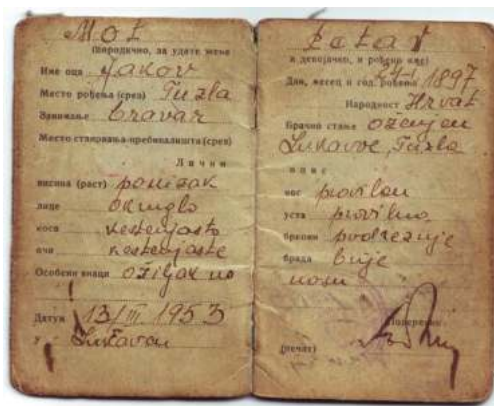 Mot
(породично, за удате жене
Име оца Jakov
Место рођења (срез) Tuzla
Занимање bravar
Место становања-пребивалишта (срез)
Лични
висина (раст) ponizak
лице okruglo
коса kestenjasta
очи kestenjaste
Особени знаци ožiljak na
Датум 13/III 1953
у Lukavac
Petar
и девојачко, и рођено име)
Дан, месец и год. рођења 1897
Народност Hrvat
Брачно стање oženjen
Lukavac, Tuzla
опис
нос pravilan
уста pravilna
бркови podrezuje
брада brije
nosu
Повереник,
(печат)